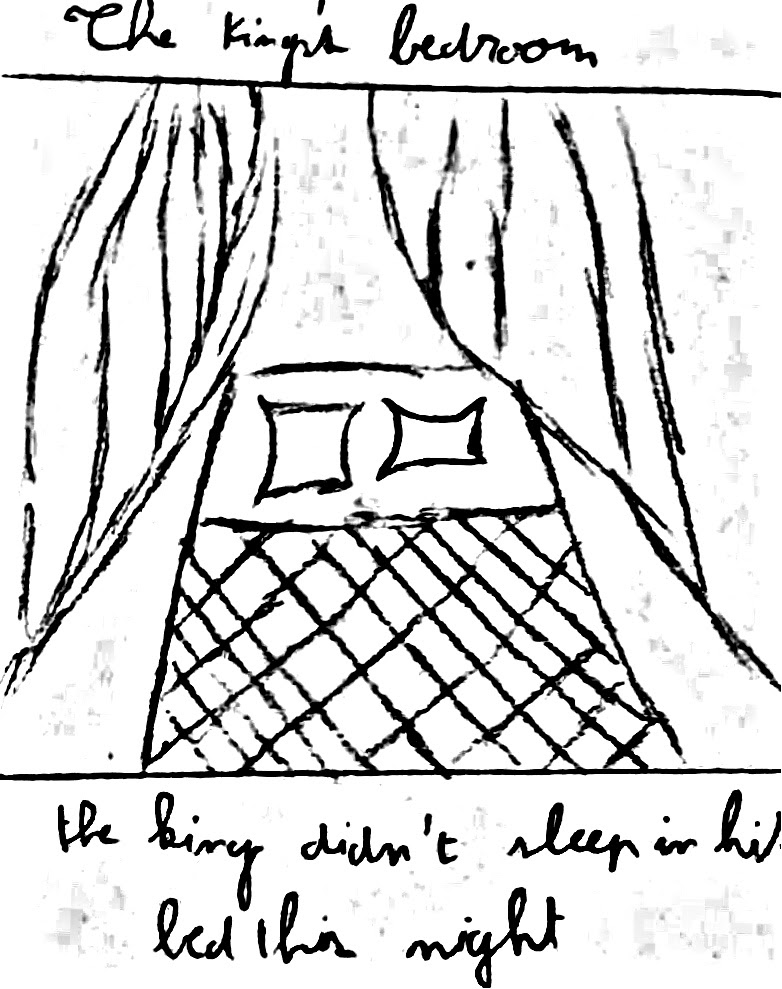 The King's bedroom
the king didn't sleep in his
bed this night